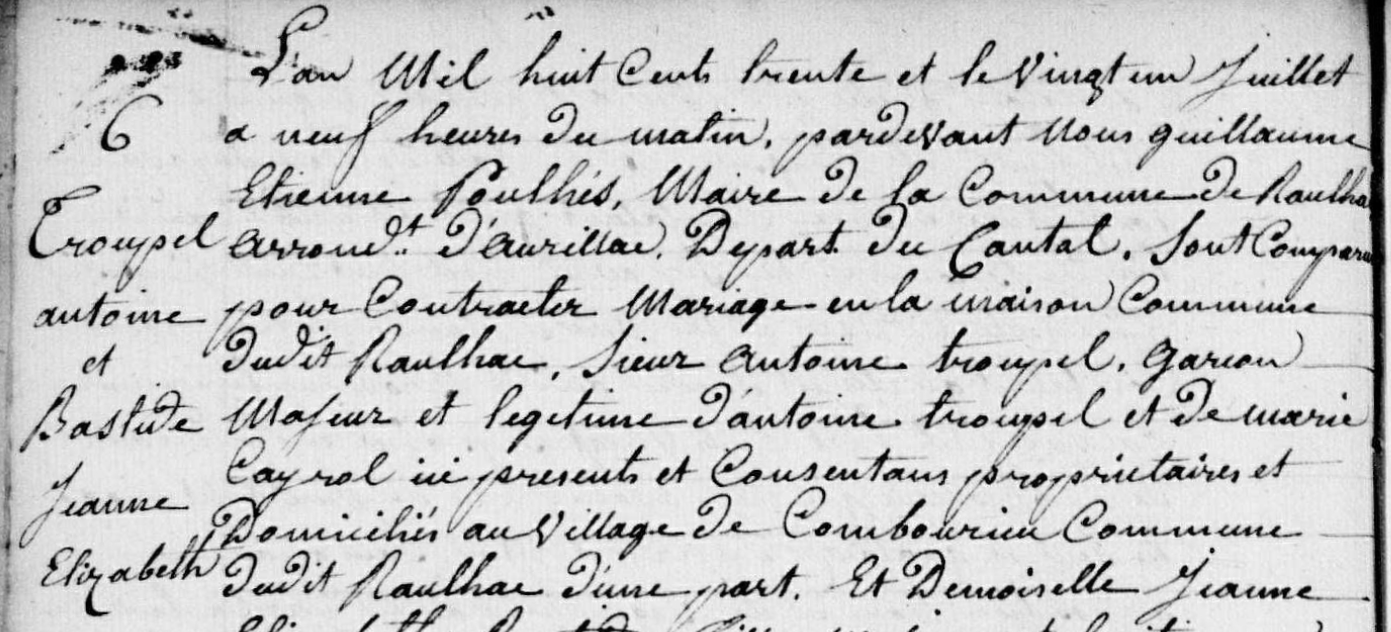 L'an Mil huit Cents trente et le Vingt un Juillet
6
a neuf heures du matin, pardevant Nous guillaume
Etienne Poulhés, Maire de la Commune de Raulhac
Troupel
arrond.t d'aurillac, Depart. du Cantal, Sont Comparus
antoine
pour Contracter Mariage en la maison Commune
et
dudit Raulhac, Sieur antoine troupel, garcon
Bastide
Majeur et legetime d'antoine troupel et de marie
Jeanne
Cayrol ici presents et Consentans proprietaires et
Domiciliés au Village de Combourieu Commune
Elizabeth
dudit Raulhac d'une part. Et Demoiselle Jeanne